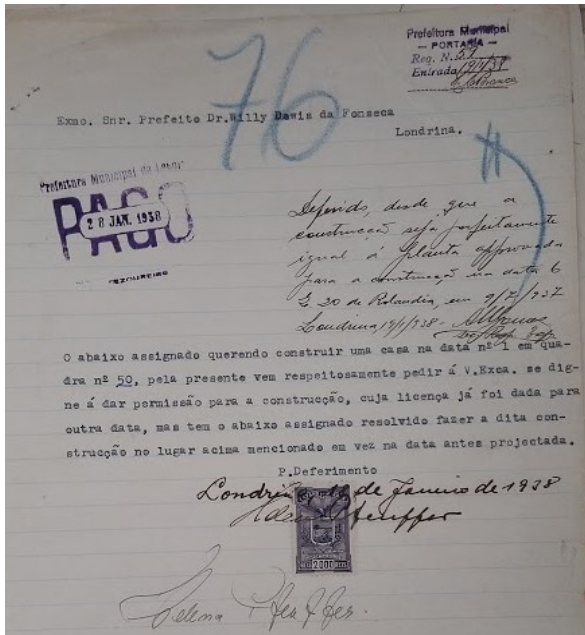 Prefeitura Municipal
— PORTARIA —
Req. N. 57
Entrada 19/1/38
76
Exmo. Snr. Prefeito Dr.Willy Davis da Fonseca
Londrina.
Prefeitura Municipal de
PAGO
28 JAN. 1938
TEZOUREIRO
Deferido, desde que a
construcção seja perfeitamente
igual á planta approvada
para a construcção na data 6
Q. 20 de Rolandia, em 9/7/937
Londrina 19/1/938 -
O abaixo assignado querendo construir uma casa na data nº 1 em qua-
dra nº 50, pela presente vem respeitosamente pedir á V.Exca. se dig-
ne á dar permissão para a construcção, cuja licença já foi dada para
outra data, mas tem o abaixo assignado resolvido fazer a dita con-
strucção no lugar acima mencionado em vez na data antes projectada.
P.Deferimento
Londrina, de Janeiro de 1938
Pfeuffer
2000 REIS
Helena